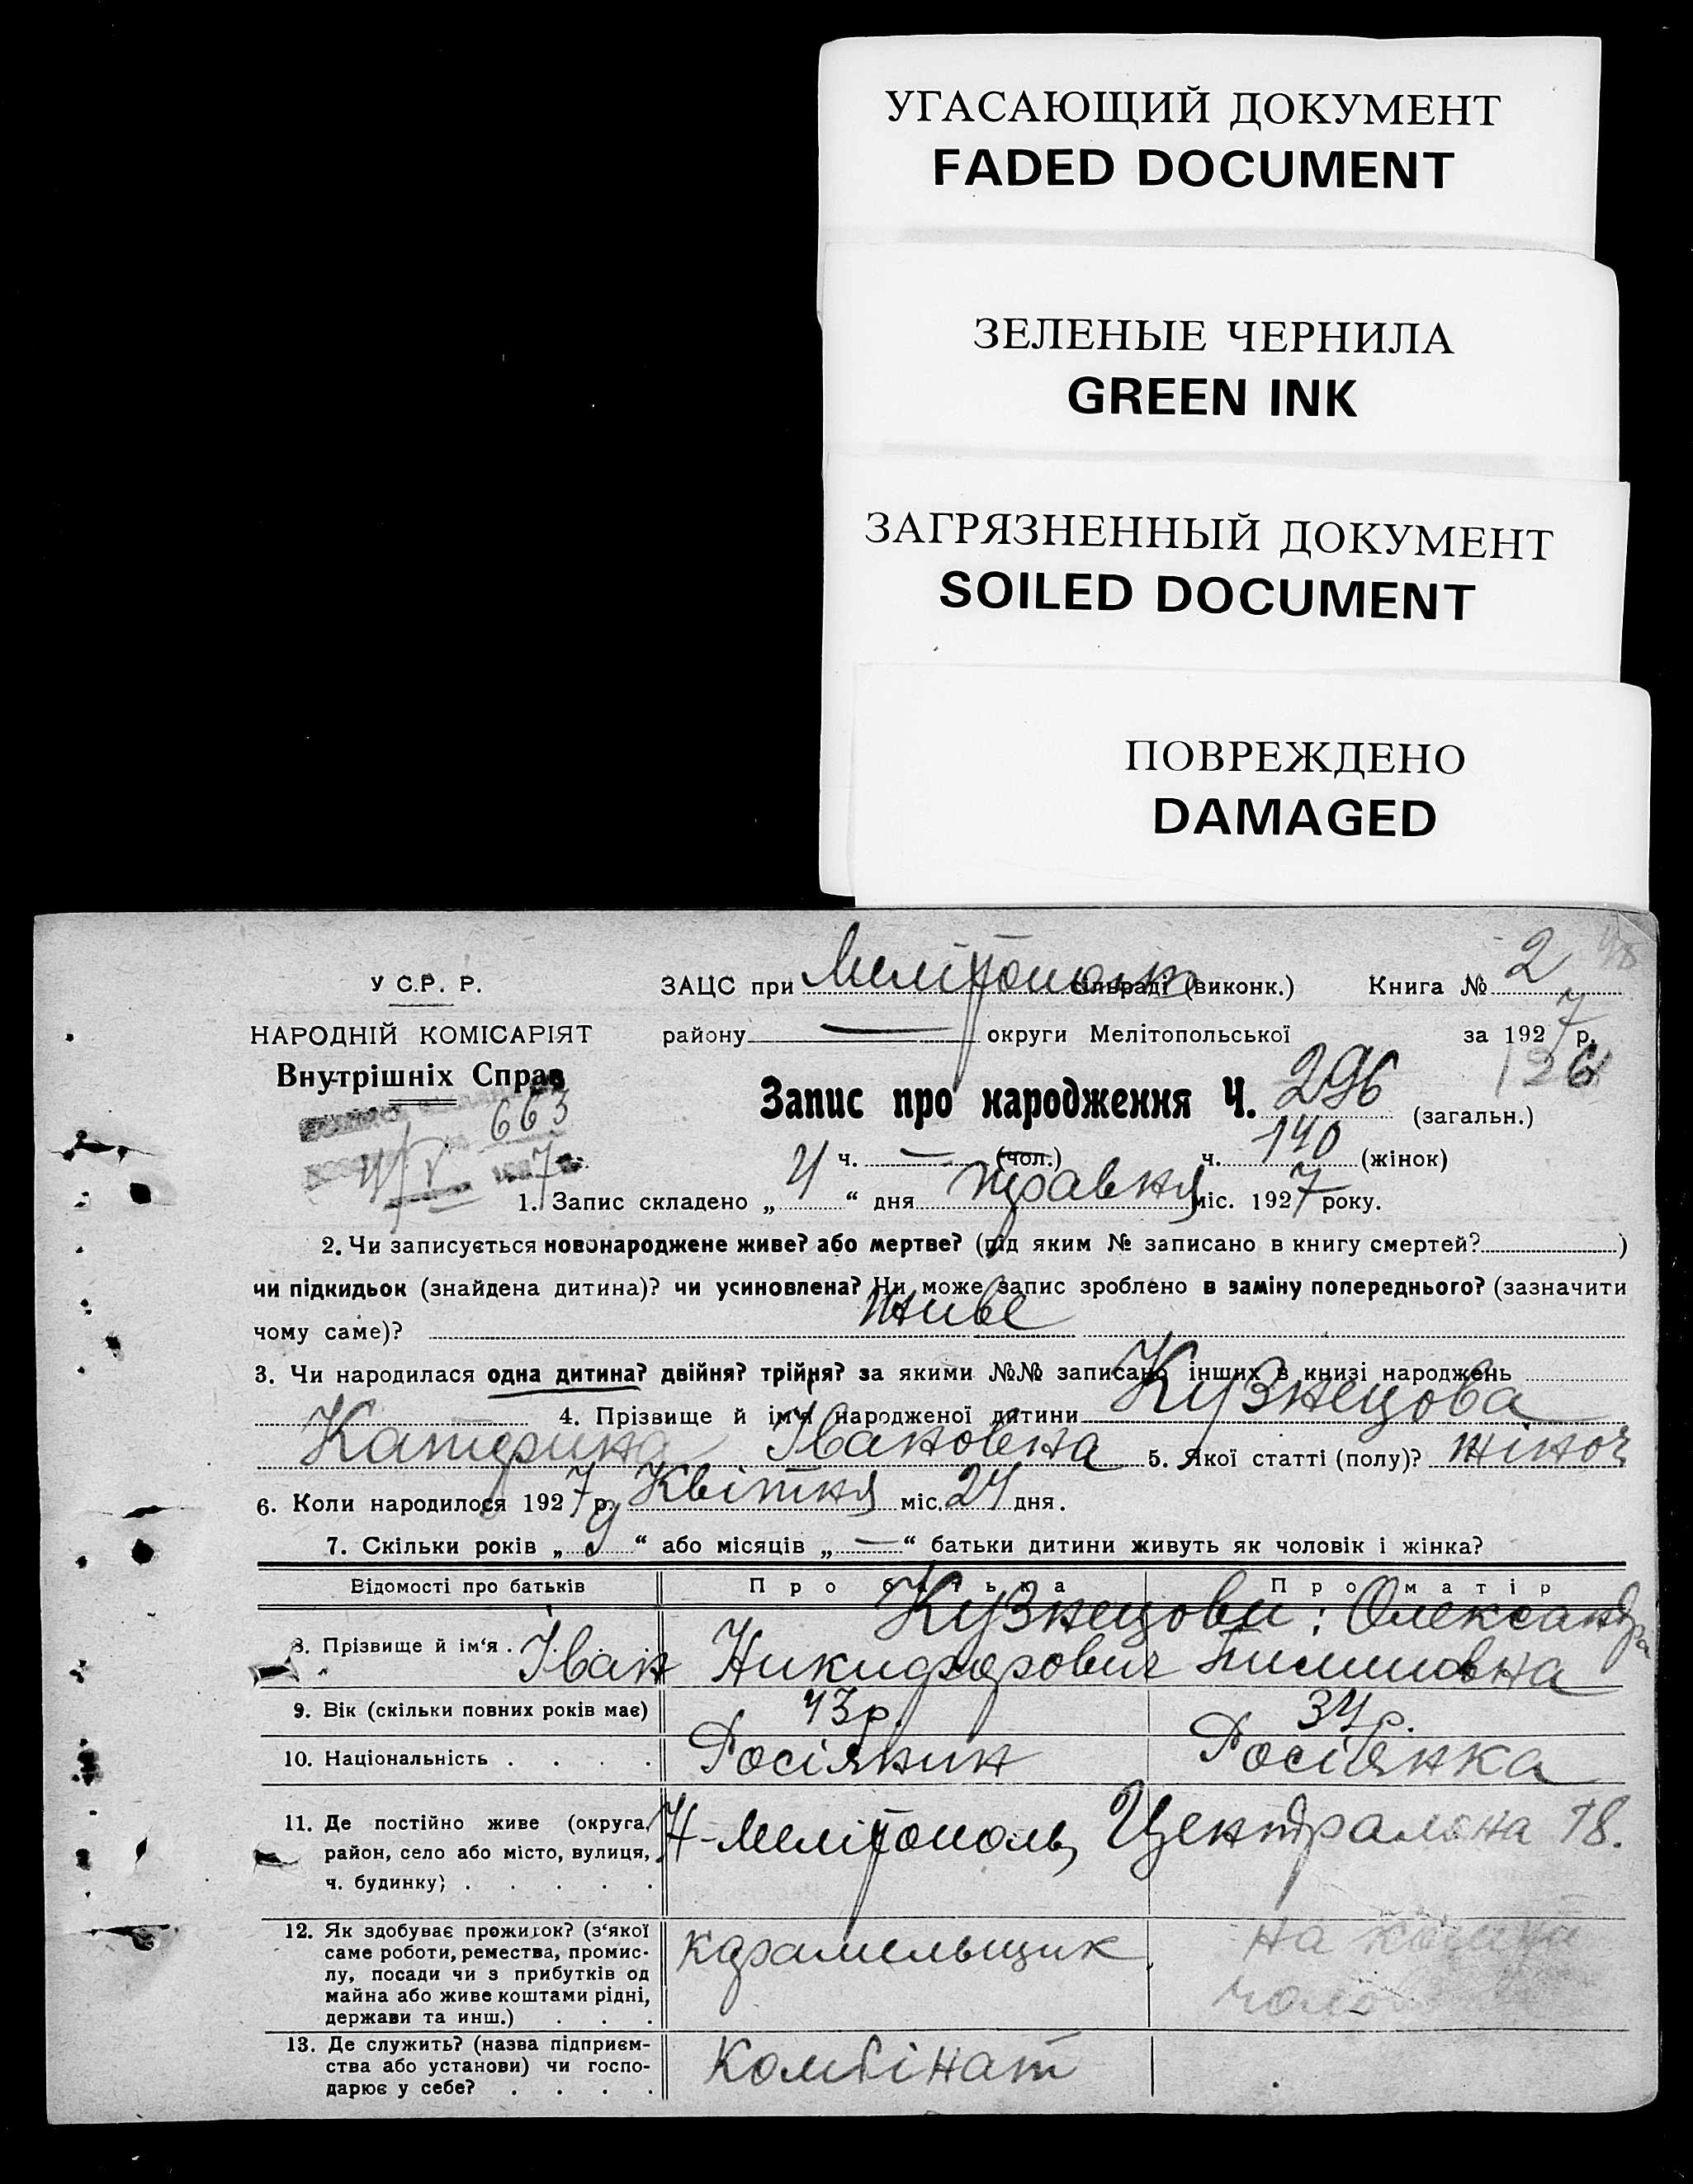 УГАСАЮЩИЙ ДОКУМЕНТ
FADED DOCUMENT
ЗЕЛЕНЫЕ ЧЕРНИЛА
GREEN INK
ЗАГРЯЗНЕННЫЙ ДОКУМЕНТ
SOILED DOCUMENT
ПОВРЕЖДЕНО
DAMAGED
У С.Р. Р.
НАРОДНІЙ КОМІСАРІЯТ
Внутрішніх Справ
663
ЗАЦС при Мелітопольск сільраді (виконк.) Книга № 2
району — округи Мелітопольської за 1927 р.
126
Запис про народження Ч. 296 (загальн.)
ч. — (чол.) ч. 140 (жінок)
1. Запис складено „4“ дня травня міс. 1927 року.
2. Чи записується новонароджене живе? або мертве? (під яким № записано в книгу смертей? )
чи підкидьок (знайдена дитина)? чи усиновлена? Чи може запис зроблено в заміну попереднього? (зазначити
чому саме)? живе
3. Чи народилася одна дитина? двійня? трійня? за якими №№ записано інших в книзі народжень
4. Прізвище й ім'я народженої дитини Кузнецова
Катерина Івановна 5. Якої статті (полу)? жіноч
6. Коли народилося 1927 р. Квітня міс. 24 дня.
7. Скільки років „9“ або місяців „—“ батьки дитини живуть як чоловік і жінка?
Відомості про батьків Про батька Про матір
8. Прізвище й ім'я . Кузнецови: Олександра
Іван Никифорович Тимишовна
9. Вік (скільки повних років має) 43 р. 34 р.
10. Національність . . . . Росіянин Росіянка
11. Де постійно живе (округа,
район, село або місто, вулиця,
ч. будинку) . . . . .
Н-Мелітополь, Центральна 18.
12. Як здобуває прожиток? (з'якої
саме роботи, ремества, промис-
лу, посади чи з прибутків од
майна або живе коштами рідні,
держави та инш.) . . .
карамельщик
на
13. Де служить? (назва підприєм-
ства або установи) чи госпо-
дарює у себе? . . . .
Комбінат